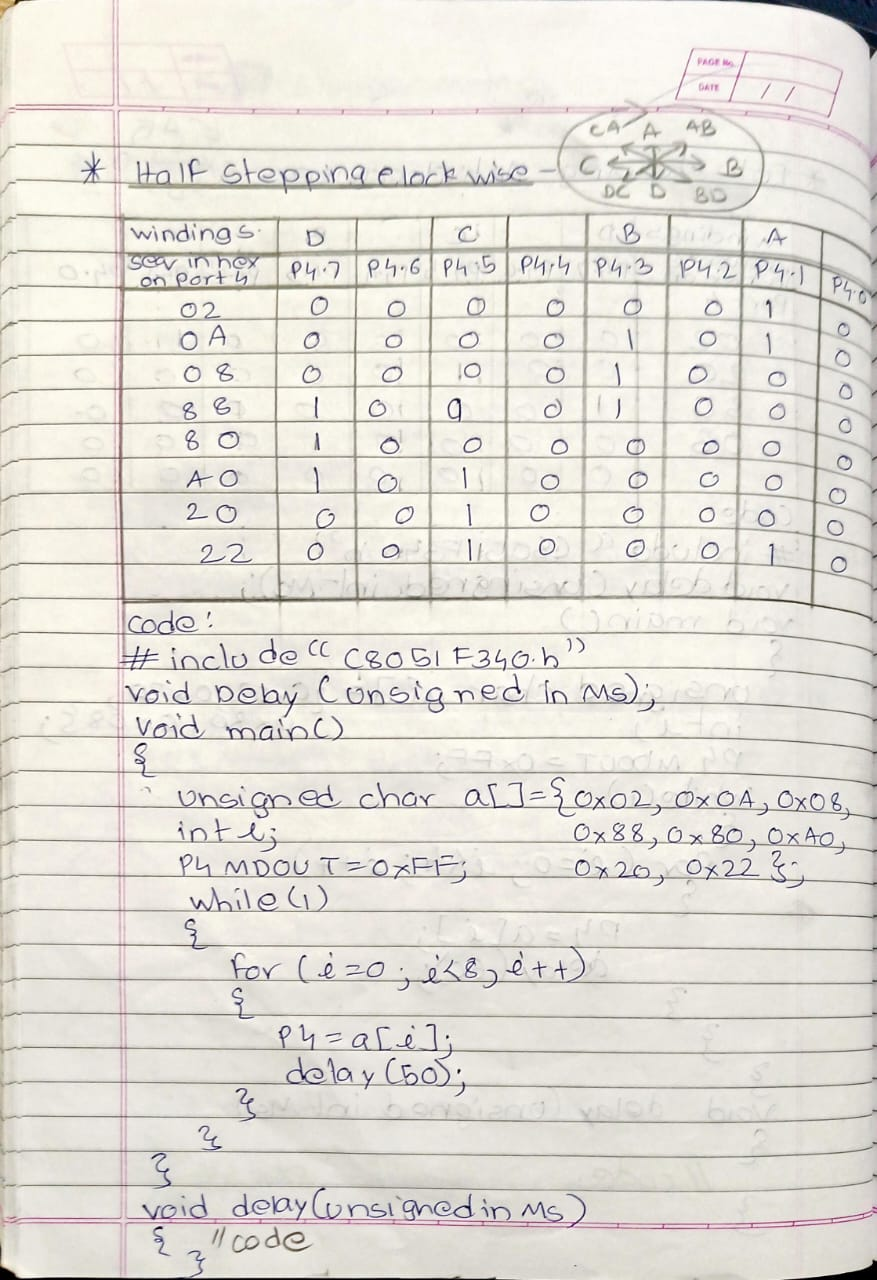 PAGE No.
DATE / /
CA A AB
* Half stepping clockwise - C B
DC D BD
windings D C B A
seq in hex on Port 4 P4.7 P4.6 P4.5 P4.4 P4.3 P4.2 P4.1 P4.0
02 0 0 0 0 0 0 1 0
0A 0 0 0 0 1 0 1 0
08 0 0 0 0 1 0 0 0
88 1 0 0 0 1 0 0 0
80 1 0 0 0 0 0 0 0
A0 1 0 1 0 0 0 0 0
20 0 0 1 0 0 0 0 0
22 0 0 1 0 0 0 1 0
code:
# include "C8051F340.h"
void Delay (unsigned in Ms);
void main()
{
unsigned char a[]={0x02, 0x0A, 0x08,
int i; 0x88, 0x80, 0xA0,
P4 MDOUT = 0xFF; 0x20, 0x22 };
while(1)
{
for (i=0; i<8; i++)
{
P4 = a[i];
delay(50);
}
}
}
void delay(unsigned in Ms)
{ //code
}